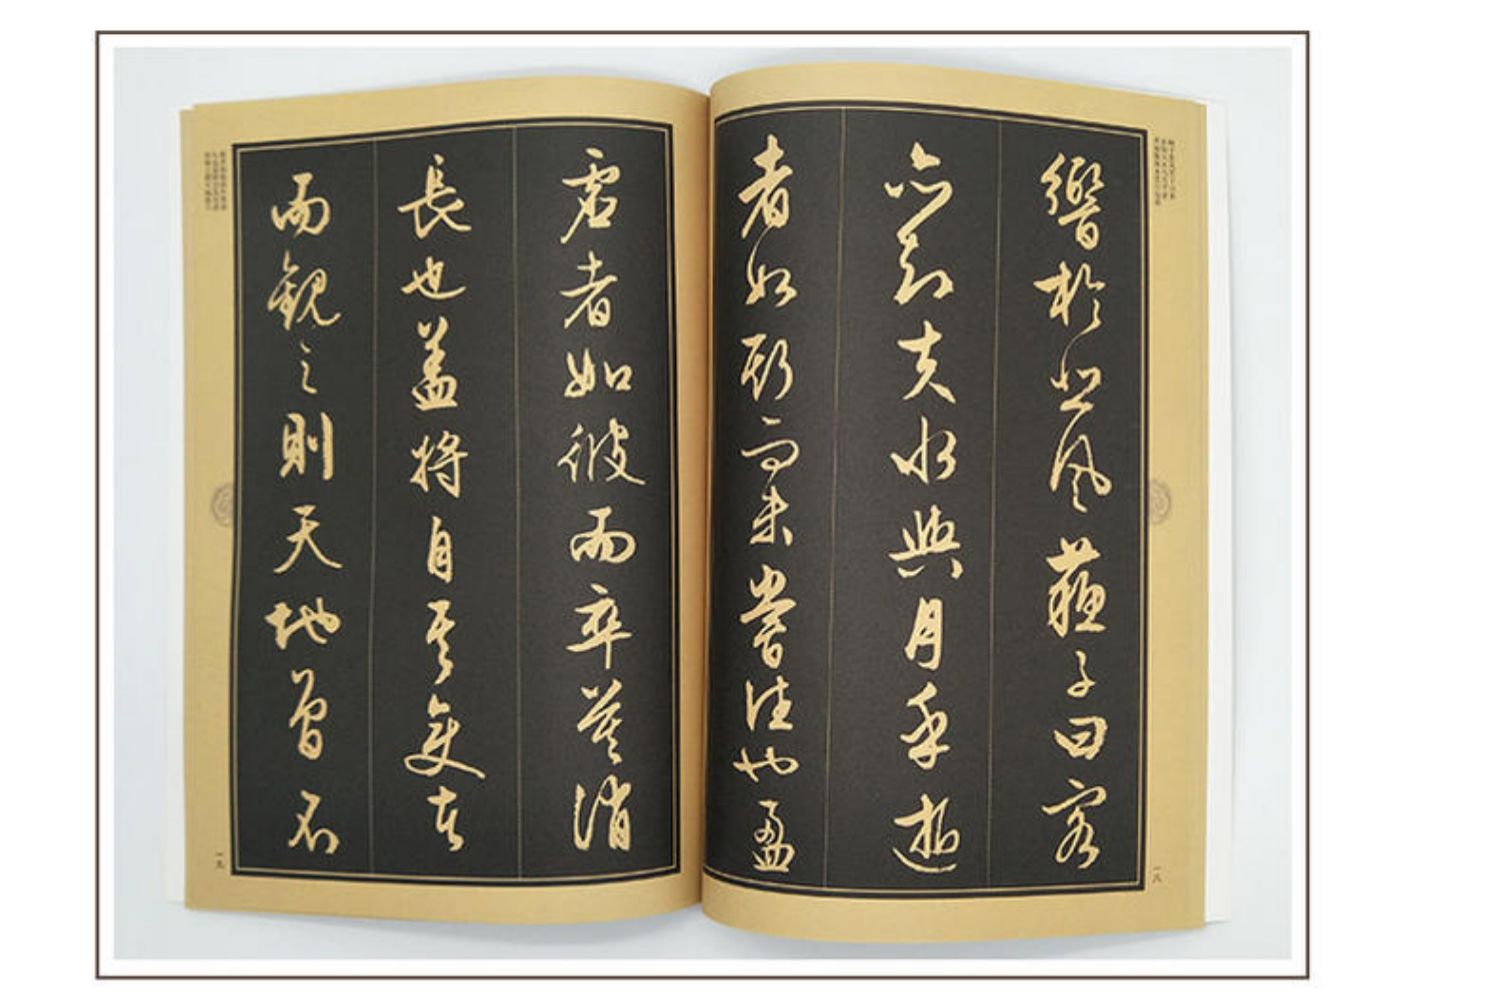 響於悲風蘇子曰客
亦知夫水與月乎逝
者如斯而未嘗往也盈
虛者如彼而卒莫消
長也盖將自其變者
而觀之則天地曾不
一八
一九